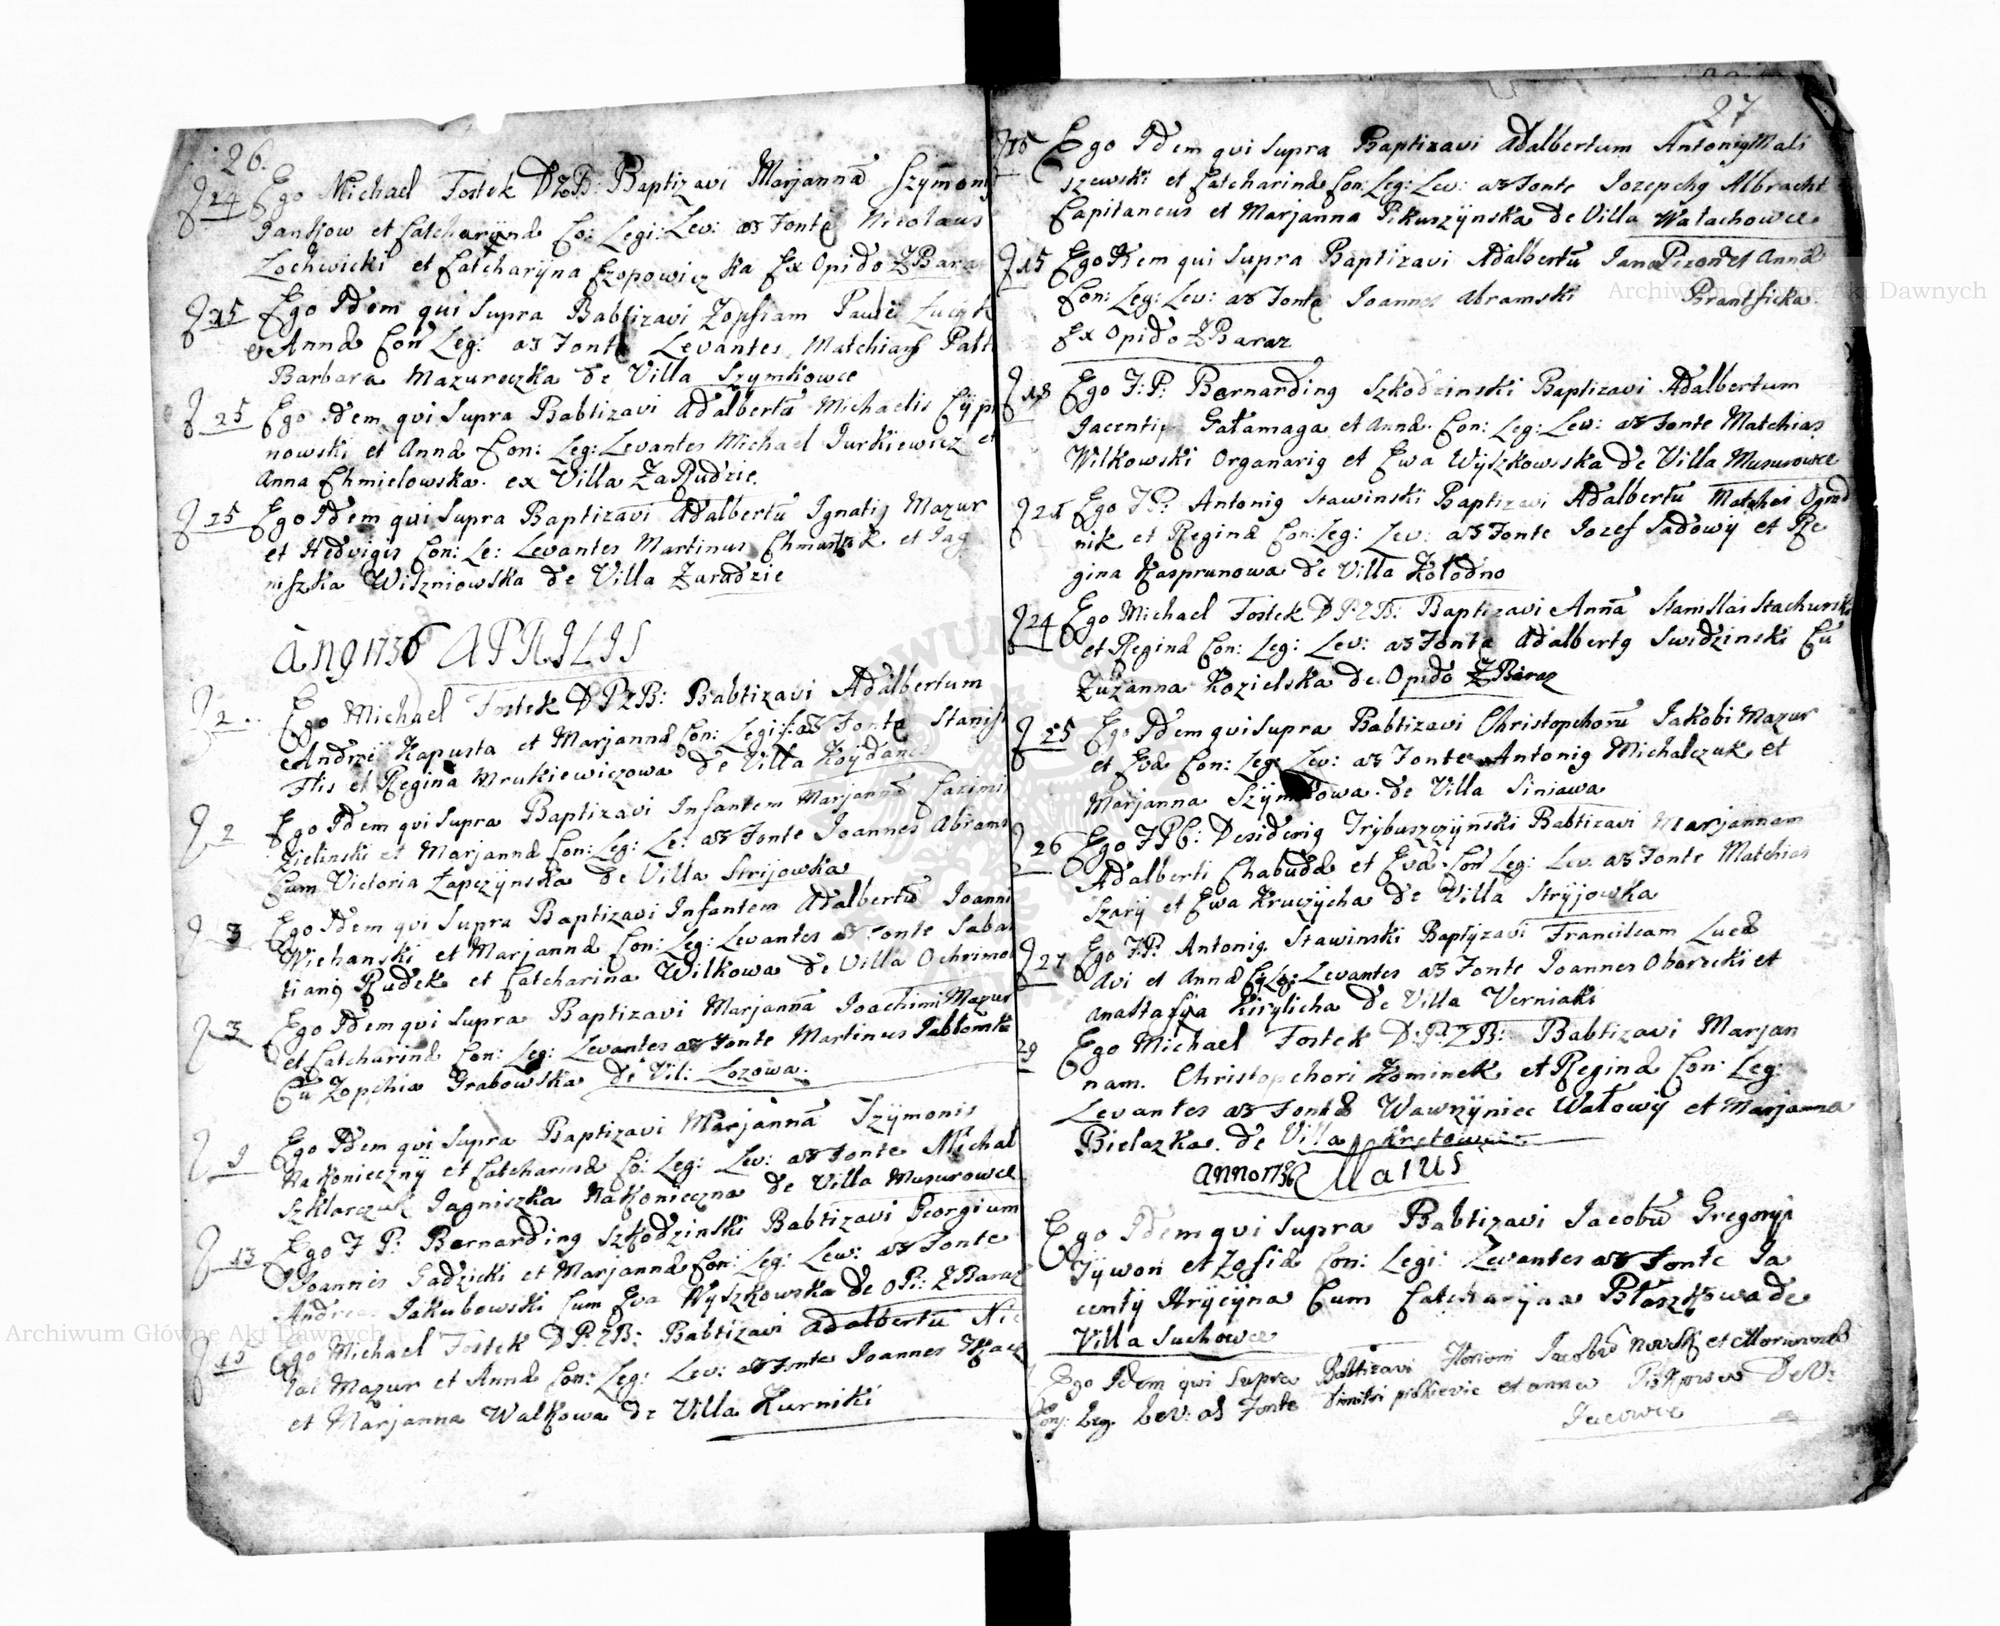 26.
24 Ego Michael Fostek DPZB: Baptizavi Marjannã Szÿmonis
Jankow et Catcharÿnæ Co: Legi: Lev: as Fonte Nicolaus
Lochwicki et Catcharÿna Czopowiczka Ex Opido ZBaraz
25 Ego Idem qui Supra Babtizavi Zopfiam
et Annæ Con Leg: as Fonte Levantes Matchias
Barbara Mazureczka de Villa Szymkowce
25 Ego Idem qvi Supra Babtizavi Adalbertũ Michaelis
nowski et Annæ Con: Leg: Levantes Michael Jurkiewicz et
Anna Chmielowska. ex Villa ZaRudzie.
25 Ego Idem qui Supra Baptizavi Adalbertũ Ignatij Mazur
et Hedvigis Con: Le: Levantes Martinus et Jag
niszka Wiszniowska de Villa Zaradzie
Ano 1736 APRILIS
2 Ego Michael Fostek DPZB: Babtizavi Adalbertum
Andreÿ Kapusta et Marjannæ Con: Legi: as Fonte
et Regina Mrukiewiczowa de Villa
2 Ego Idem qvi Supra Baptizavi Infantem Marjannã
Zielinski et Marjannæ Con: Leg: Le: as Fonte Joannes
Cum Victoria Łapczÿnska de Villa Strijowka
3 Ego Idem qvi Supra Baptizavi Infantem Adalbertũ Joannis
Wichanski et Marjannæ Con: Leg: Levantes as Fonte Sabas
tiang Rudek et Catcharina Wilkowa de Villa
3 Ego Idem qui Supra Baptizavi Marjannã Joachimi Mazur
et Catcharinæ Con: Leg: Levantes as Fonte Martinus
Cũ Zopchia Grabowska de Vil: Lozowa.
9 Ego Idem qvi Supra Baptizavi Marjannã Szÿmonis
NaKoniecznÿ et Catcharinæ Co: Leg: Lev: as Fonte Michal
Szklarczuk Jagniszka NaKonieczna de Villa Musurowce
13 Ego F P: Bernarding Szkodzinski Babtizavi Georgium
Joannis Gadzicki et Marjannæ Con: Leg: Lew: as Fonte
Jakubowski Cum Eva Wyszkowska de OP: ZBaraz
15 Ego Michael Fostek DPZB: Babtizavi Adalbertũ
Mazur et Annæ Con: Leg: Lev: as Fonte Joannes
et Marjanna Walkowa de Villa Kurniki
27
15 Ego Idem qvi Supra Baptizavi Adalbertum Antonig Mali
szewski et Catcharinæ Con: Leg: Lev: as Fonte Jozepchg Albracht
Capitaneus et Marjanna Pikuszÿnska de Villa Wałachowce
15 Ego Idem qui Supra Baptizavi Adalbertũ et Annæ
Con: Leg: Lev: as Fonte Joannes Abramski
Ex Opido ZBaraz
18 Ego F: P: Bernarding Szkodzinski Baptizavi Adalbertum
Jacentij Gałamaga et Annæ. Con: Leg: Lev: as Fonte Matchias
Wilkowski Organarig et Ewa Wÿszkowska de Villa Musurowce
21 Ego F P: Antonig Stawinski Baptizavi Adalbertũ Matchei Ogrod
nik et Reginæ Con: Leg: Lev: as Fonte Jozef Sadowÿ et Re
gina Kasprunowa de Villa Kołodno
24 Ego Michael Fostek DPZB: Baptizavi Annã Stanislai Stachurski
et Reginæ Con: Leg: Lev: as Fonte Adalbertg Swidzinski Cũ
Zuzanna Kozielska de Opido ZBaraz
25 Ego Idem qvi Supra Babtizavi Christopchorũ Jakobi Mazur
et Evæ Con: Leg: Lev: as Fonte Antonig Michalczuk et
Marjanna de Villa Siniawa
26 Ego F P C: Desiderig Trÿbuszczÿnski Babtizavi Marjannam
Adalberti Chabudæ et Evæ Con Leg: Lev as Fonte Matchias
Szarij et Ewa Kruczÿcha de Villa Strÿjowka
27 Ego F P: Antonig Stawinski Baptÿzavi Franciscam Lucæ
Avi et Annæ Co Leg: Levantes as Fonte Joannes Oborecki et
Anastasÿa Kirÿlicha de Villa Verniaki
29 Ego Michael Fostek D:P:ZB: Babtizavi Marjan
nam. Christopchori Kominek et Reginæ Con: Leg:
Levantes as Fonte Wawrzÿniec Wałowÿ et Marjanna
Bielazka. de Villa Kretowce
Anno 1736 Maius
Ego Idem qvi Supra Babtizavi Jacobũ Gregorÿi
Tÿwon et Zofiæ Con: Legi: Levantes as Fonte Ja
centÿ Hrÿcÿna Cum Catcharÿna Błaszkowa de
Villa Suchowce
Ego Idem qvi Supra Babtizavi Jacobũ et Mariannæ
Conj: Leg. Lev: as Fonte Dimitri piskievic et anna Piskowa De Vi:
Jacowce
Archiwum Główne Akt Dawnych
Archiwum Główne Akt Dawnych